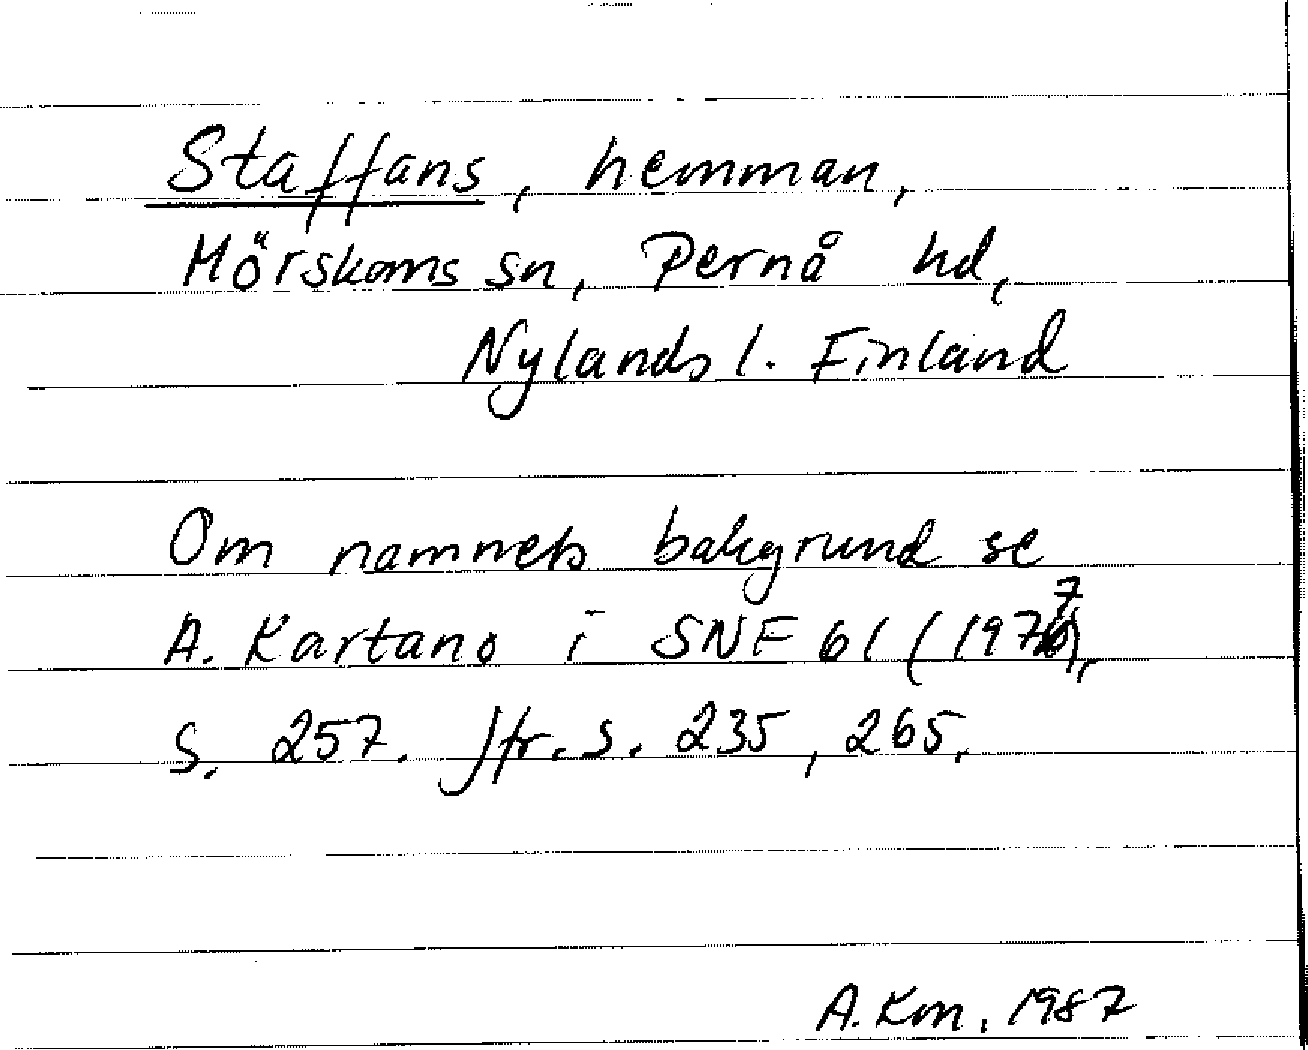 Staffans, hemman,
Mörskoms sn, Pernå hd,
Nylands l. Finland
Om namnets bakgrund se
A. Kartano i SNF 61 (1977),
s. 257. Jfr. s. 235, 265.
A. Km. 1987